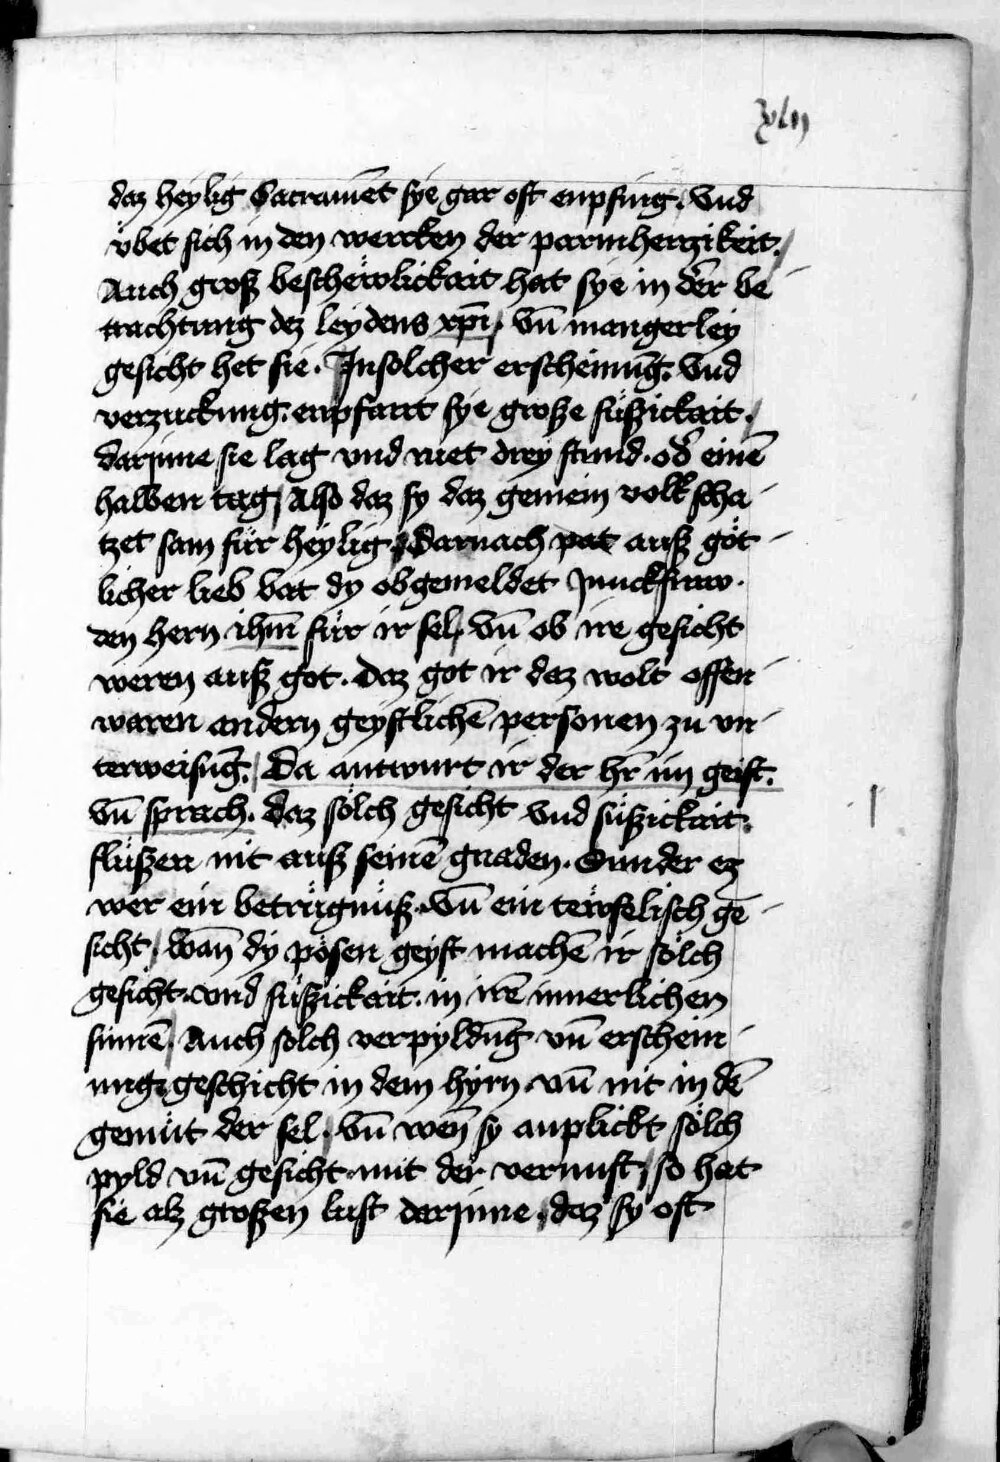 daz heylig Sacramēt sye gar oft enpfing. Vnd
vbet sich in den wercken der parmherzikeit.
Auch groß beschewlickait hat sye in der be-
trachtung dez leydens xp̄i. vn̄ mangerley
gesicht het sie. In solcher erscheinūg. Vnd
verzuckung. enpfant sye große süßickait.
darjnne sie lag vnd ruet drey stund. od̄ einē
halben tag. Also daz sy daz gemein volk scha-
tzet sam für heylig. Darnach pat auß göt-
licher lieb bat dy obgemeldet Junckfraw.
den hern ihm̄ für ir sel. Vn̄ ob ire gesicht
weren auß got. Daz got ir daz wolt offen-
waren andern geystlichē personen zu vn-
terweisūg. Da antwurt ir der hr̄ im geist.
Vn̄ sprach. daz sölch gesicht vnd süßickait.
flußen nit auß seinē gnaden. Sunder ez
wer ein betrügnüß. Vn̄ ein tewfelisch ge-
sicht. Wan̄ dy pösen geyst machē ir sölch
gesicht. vnd süßickait. in irē innerlichen
sinnē. Auch solch verpyldūg vn̄ erschein-
ung. geschicht in dem hyrn. vn̄ nit in dē
gemüt der sel. Vn̄ wen̄ sy anplickt sölch
pyld vn̄ gesicht. mit der vernuft. so hat
sie alz großen lust darjnne. daz sy oft